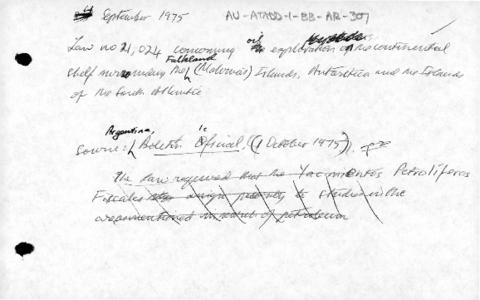 4 September 1975 AU-ATADD-1-BB-AR-307
Law no 21,024 concerning oil exploration on the continental
shelf surrounding the Falkland (Malvinas) Islands, Antarctica and the Islands
of the South Atlantic
Source: Argentina, Boletin Oficial, (1 October 1975), pp
The law required that the Yacimientos Petroliferos
Fiscales assign priority to studies in the
area mentioned in search of petroleum